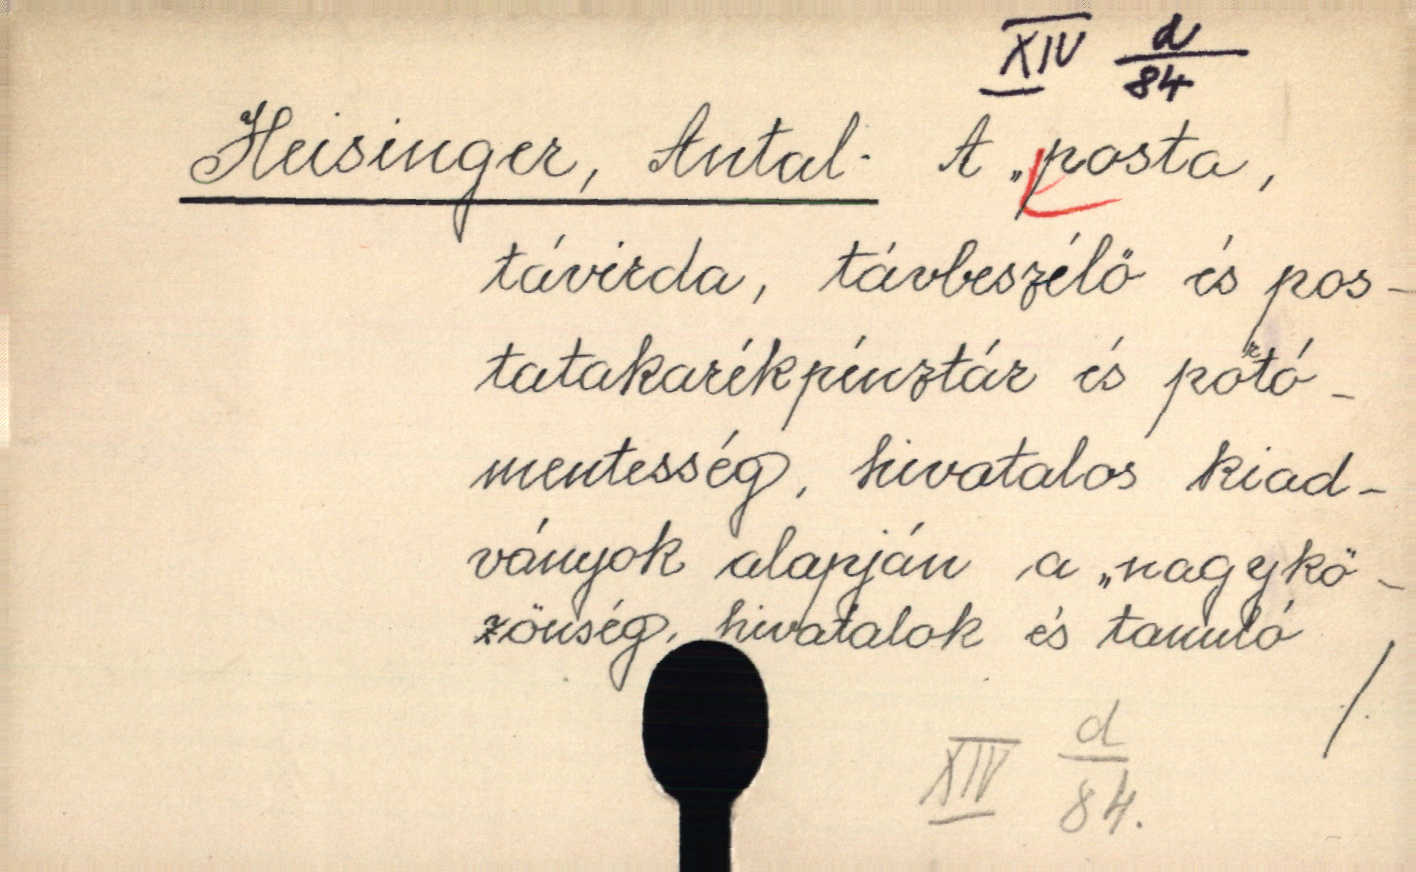 XIV d/84
Heisinger, Antal. A „posta,
távirda, távbeszélő és pos-
tatakarékpénztár és portó-
mentesség, hivatalos kiad-
ványok alapján a „nagykö-
zönség, hivatalok és tanuló
/.
XIV d/84.